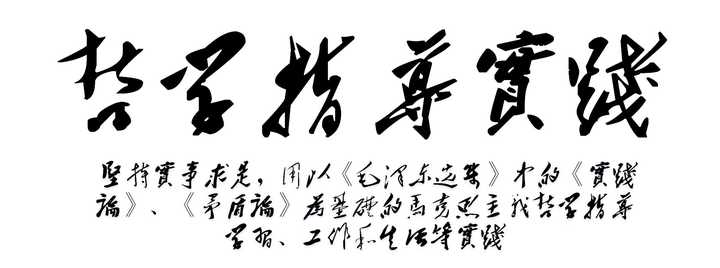 哲学指導實踐
堅持實事求是，用以《毛澤东选集》中的《實踐
論》、《矛盾論》為基礎的馬克思主義哲学指導
学習、工作和生活等實踐